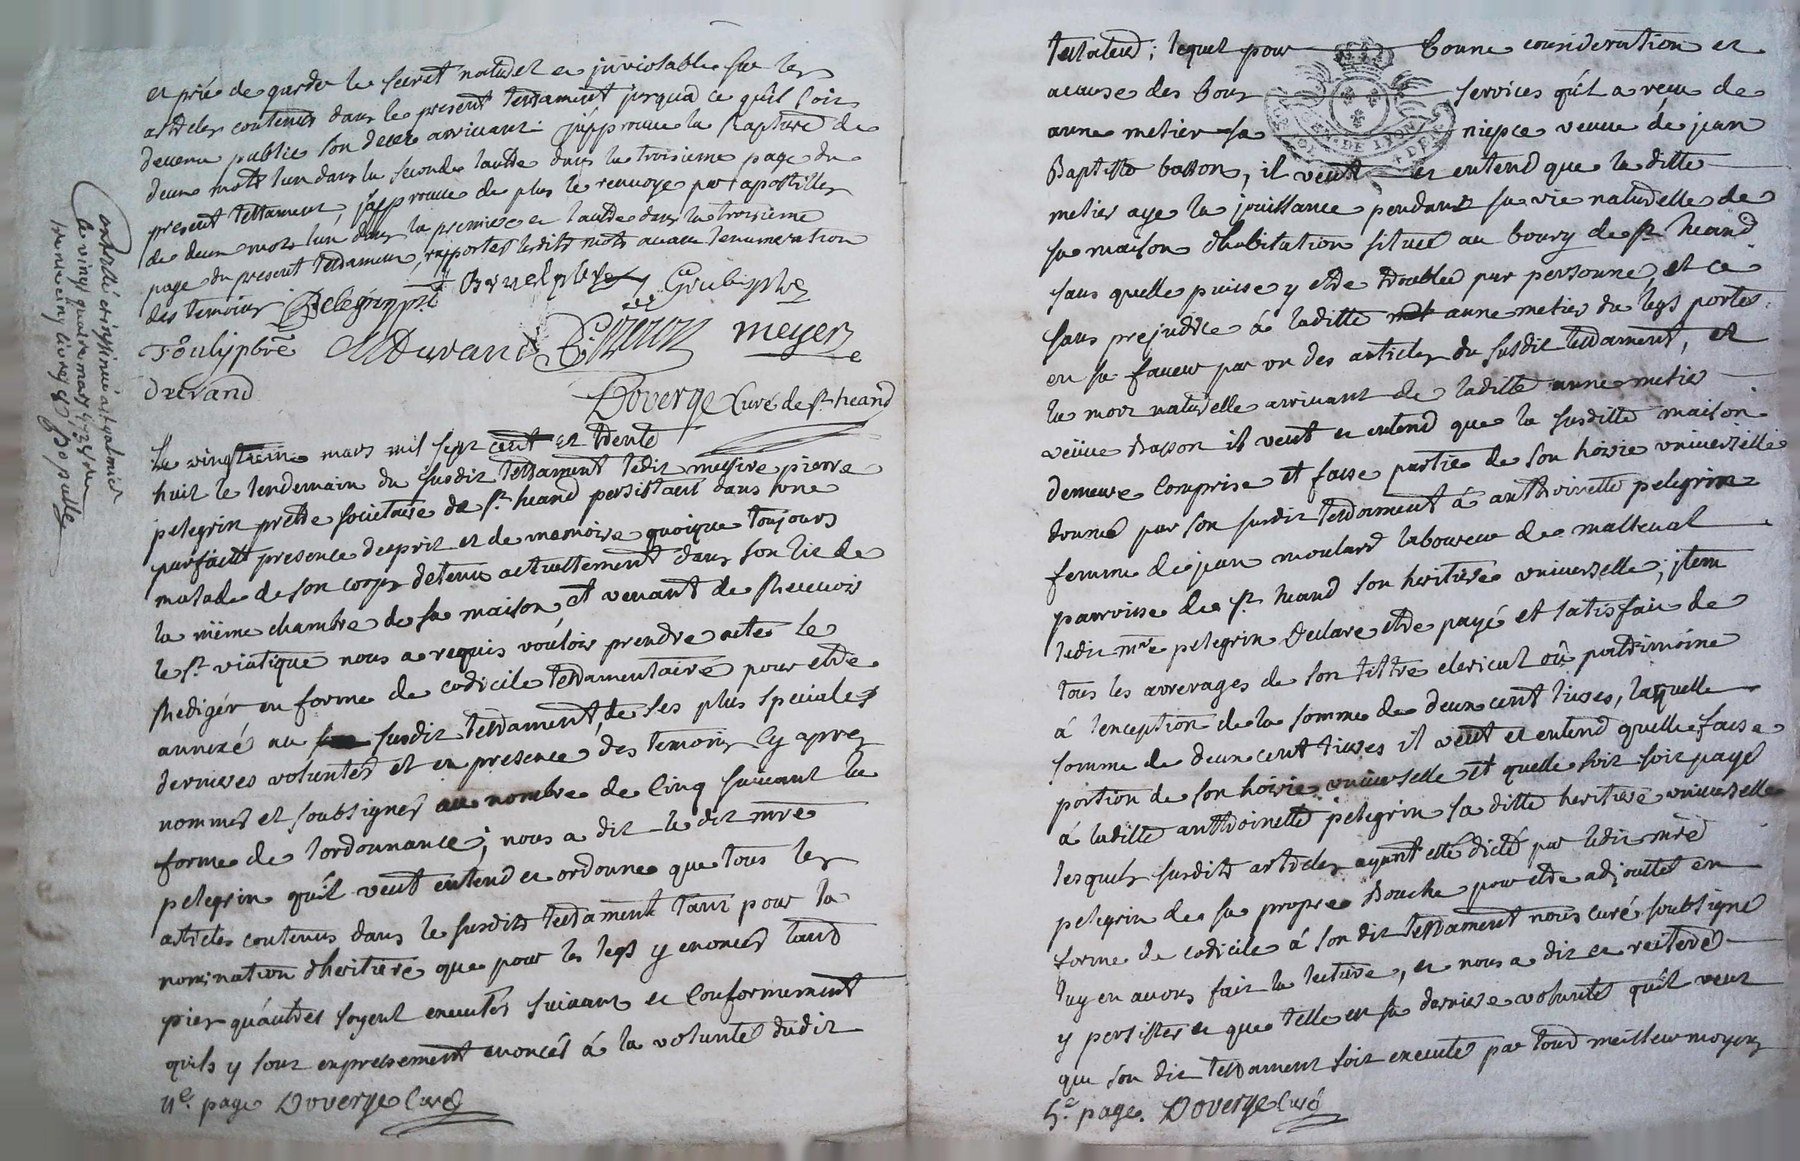 et prié de garder le secret naturel et inviolable sur les
articles contenus dans le present testament jusqua ce quil soit
devenu public son decez arrivant j'approuve la rapture de
deux mots lun dans la seconde lautre dans la troisieme page du
present testament, japprouve de plus le renvoye par apostilles
de deux mots lun dans la premiere et lautre dans la troisieme
page du present testament, rapportes lesdits mots avant lenumeration
des temoins Pelegrin ptre
meyer
Durand
Doverge Curé de st heand
controllé et insinué a st galmier
le vingt quatre mars 1738 reçu
trente cinq livres
Le vingtieme mars mil sept cent et trente
huit le lendemain du susdit testament ledit messire pierre
pelegrin pretre societaire de st heand persistant dans une
parfaitte presence desprit et de memoire quoique toujours
malade de son corps detenu actuellement dans son lit de
la même chambre de sa maison, et venant de recevoir
le st viatique nous a requis voulois prendre acte le
Rediger en forme de codicile testamentaire pour etre
annexé au susdit testament, de ses plus speciales
dernieres voluntés et en presence des temoins cy apres
nommes et soubsignes au nombre de cinq suivant la
forme de lordonnance; nous a dit le dit mre
pelegrin qu'il veut entend et ordonne que tous les
articles contenus dans le susdits testament tant pour la
nomination dheritiere que pour les legs y enonces tant
pies qu'autres soyent executés suivant et conformement
quils y sont expressement enoncés á la volunté dudit
4e. page Doverge Curé
testateur; lequel pour bonne consideration et
acause des bons services quil a reçu de
anne metier sa niepce veuve de jean
Baptiste basson, il veut et entend que la ditte
metier aye la jouissance pendant sa vie naturelle de
sa maison dhabitation situeé au bourg de st heand
sans quelle puisse y etre troublee par personne, et ce
sans prejudice á laditte anne metier du legs portes
en sa faveur par un des articles du susdit testament, et
la mort naturelle arrivant de laditte anne metier
veüve basson il veut et entend que la susditte maison
demeure comprise et fasse partie de son hoirie universelle
donné par son susdit testament á anthoinette pelegrin
femme de jean moulard laboureur de malleval
parroisse de st heand son heritiere universelle; jtem
ledit mre pelegrin declare etre payé et satisfait de
tous les arrerages de son tittre clerical oû patrimoine
á lexception de la somme de deux cent livres, laquelle
somme de deux cent livres il veut et entend quelle fasse
portion de son hoirie universelle et quelle soit soit payé
á laditte anthoinette pelegrin sa ditte heritiere universelle
lesquels susdits articles ayant eté dicté par ledit mre
pelegrin de sa propre bouche pour etre adjoutté en
forme de codicile á son dit testament nous curé soubsigné
luy en avons fait la lecture, et nous a dit et reiteré
y persister et que telle en sa derniere volunté qu'il veut
que son dit testament soit executé par tous meilleur moyens
5e page. Doverge Curé